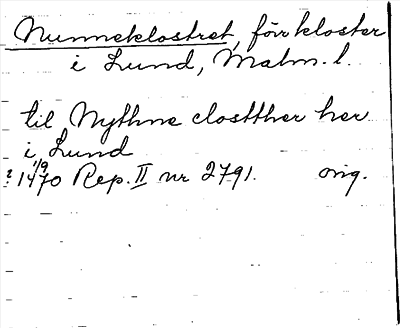 Nunneklostret, förr kloster
i Lund, Malm. l.
til Nythne clostther her
i Lund
1/9
? 1470 Rep. II nr 2791. orig.